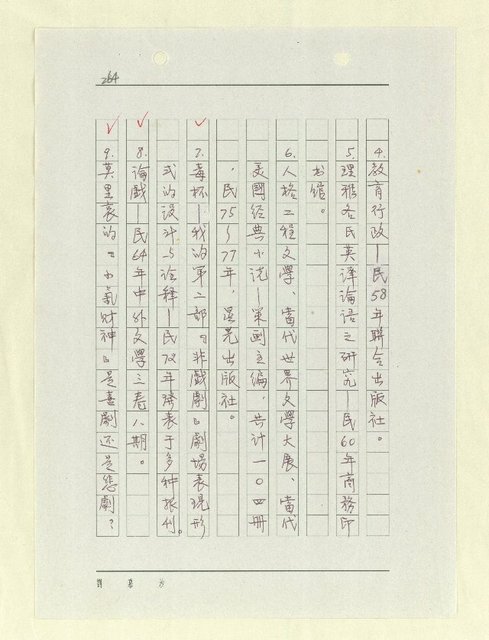 264
4.教育行政—民58年聯合出版社。
5.理雅各氏英譯論語之研究—民60年商務印
书館。
6.人格工程文學、當代世界文學大展、當代
美國經典小说—策画主编,共计一〇四册
,民75~77年,晨光出版社。
7.毒杯—我的第二部『非戲劇』劇場表現形
式的设计与诠释—民72年發表于多种报刊。
8.論戲—民64年中外文學三卷八期。
9.莫里哀的『小氣财神』是喜劇还是悲劇?